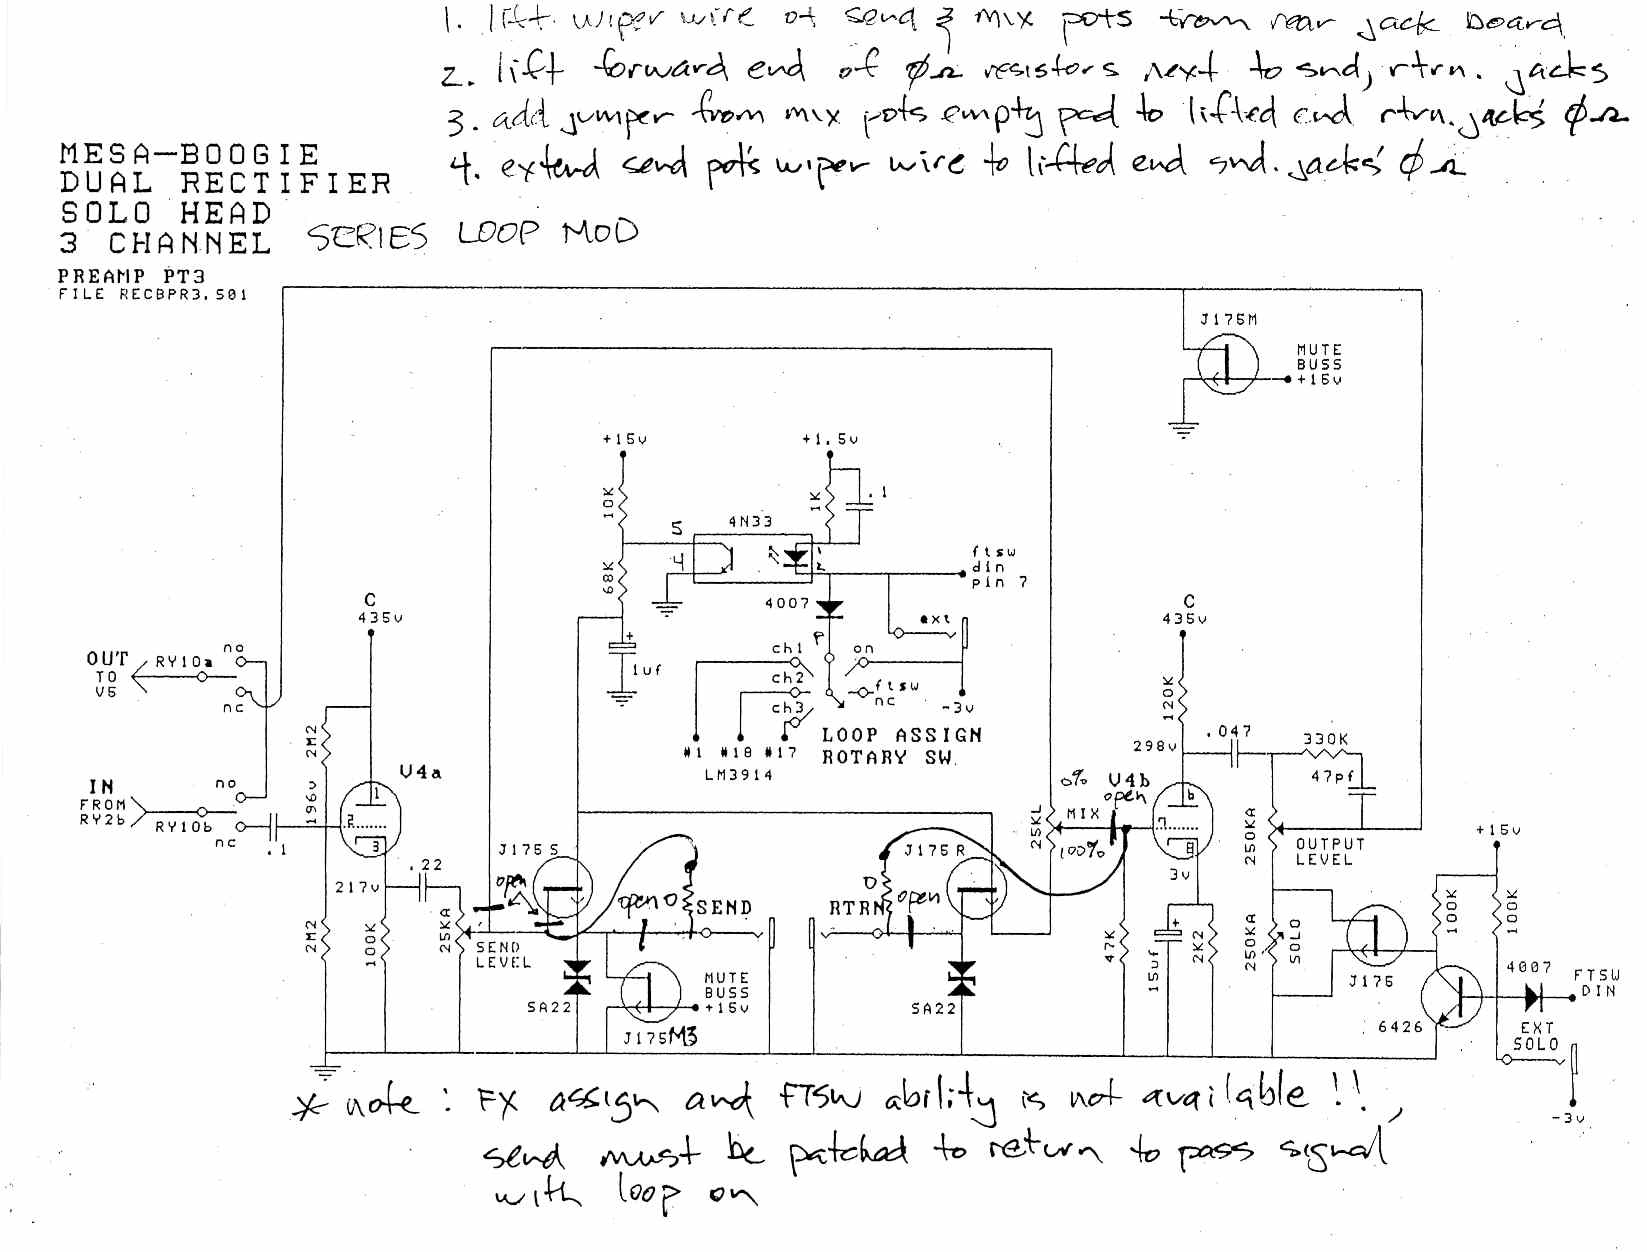 1. lift wiper wire of send & mix pots from rear jack board
2. lift forward end of ϕΩ resistors next to snd, rtrn. jacks
3. add jumper from mix pots empty pad to lifted end rtrn. jack's ϕΩ
4. extend send pot's wiper wire to lifted end snd. jacks' ϕΩ
MESA-BOOGIE
DUAL RECTIFIER
SOLO HEAD
3 CHANNEL SERIES LOOP MOD
PREAMP PT3
FILE RECBPR3.S01
J175M
MUTE
BUSS
+15v
+15v
+1.5v
10K
1K
.1
4N33
5
4
1
2
68K
4007
ftsw
din
pin 7
ext
1uf
P
ch1
on
ch2
ftsw
nc
ch3
-3v
#1 #18 #17
LM3914
LOOP ASSIGN
ROTARY SW.
C
435v
OUT
TO
V5
RY10a
no
nc
IN
FROM
RY2b
RY10b
no
nc
.1
2M2
196v
V4a
1
2
3
217v
.22
2M2
100K
25KA
SEND
LEVEL
open
J175 S
open
0
SEND
SA22
MUTE
BUSS
+15v
J175M3
RTRN
0
open
J175 R
SA22
25KL
0%
MIX
100%
V4b
open
C
435v
120K
298v
.047
330K
47pf
6
7
8
3v
250KA
OUTPUT
LEVEL
47K
15uf
+
2K2
250KA
SOLO
J175
+15v
100K
100K
4007
FTSW
DIN
6426
EXT
SOLO
-3v
* note : FX assign and FTSW ability is not available !!,
send must be patched to return to pass signal
with loop on